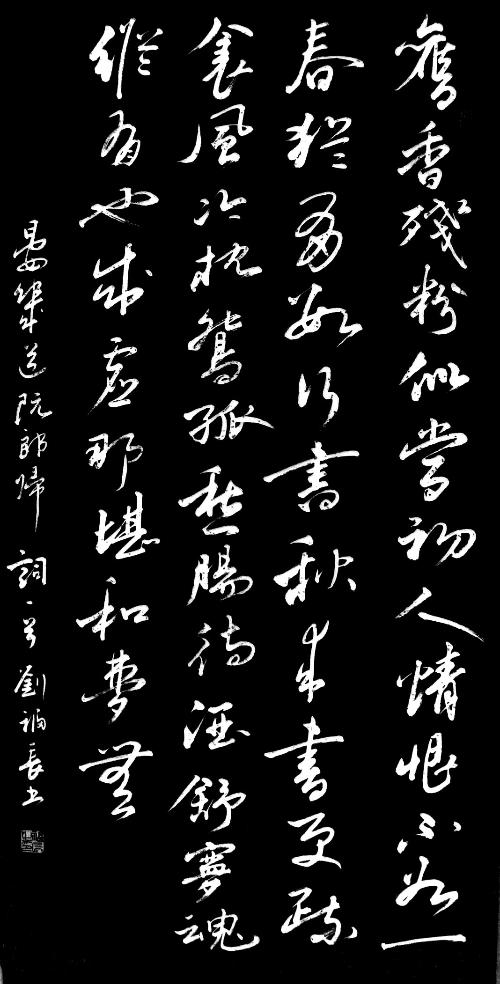 舊香殘粉似當初人情恨不如一
春猶有數行書秋來書更疏
衾風冷枕鴛孤愁腸待酒舒夢魂
縱有也成虛那堪和夢無
晏幾道阮郎歸 詞一首 劉長书